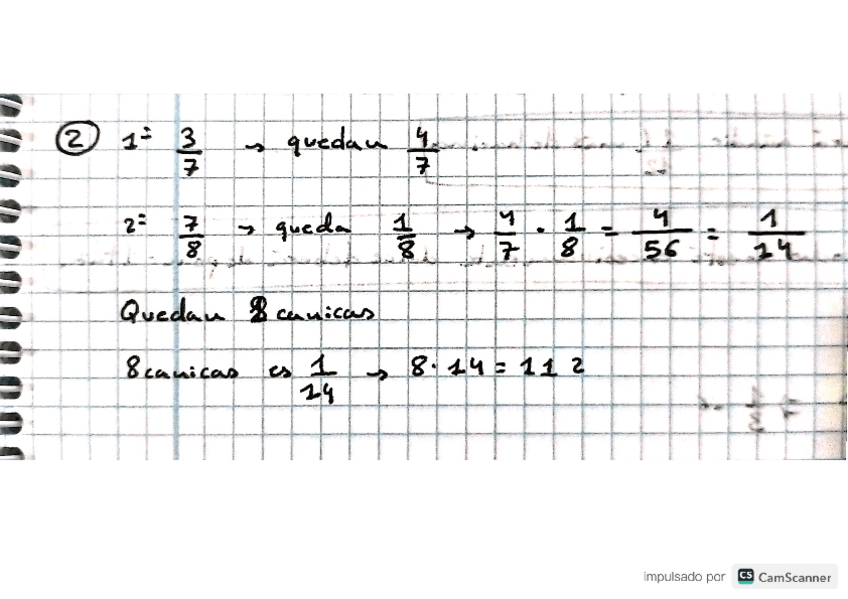 2 1º 3/7 → quedan 4/7
2º 7/8 → queda 1/8 → 4/7 · 1/8 = 4/56 = 1/14
Quedan 8 canicas
8 canicas es 1/14 → 8 · 14 = 112
impulsado por CS CamScanner